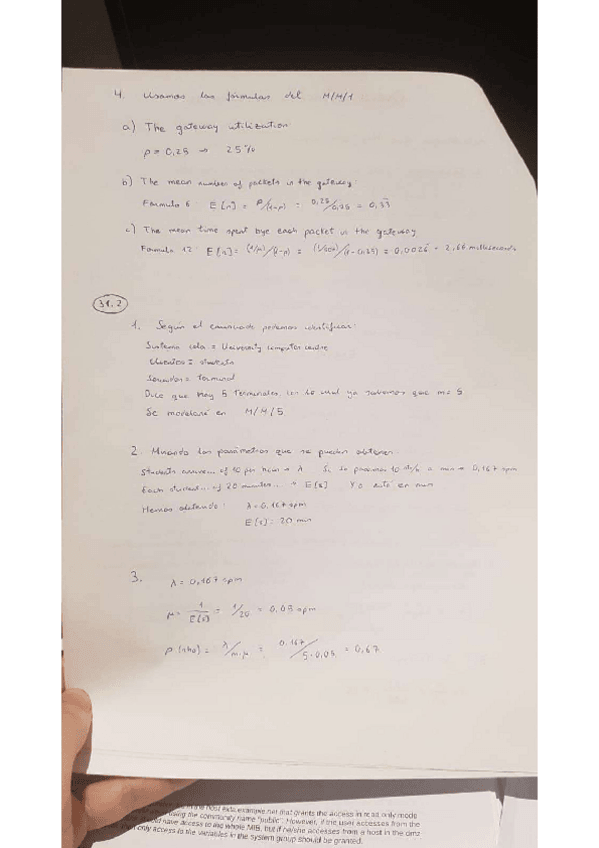 4. Usamos las fórmulas del M/M/1
a) The gateway utilization:
ρ = 0,25 → 25%
b) The mean number of packets in the gateway
Formula 6 E[n] = ρ/(1-ρ) = 0,25/0,75 = 0,33
c) The mean time spent bye each packet in the gateway
Formula 12 E[r] = (1/μ)/(1-ρ) = = 0,0026 = 2,66 milliseconds
31.2
1. Según el enunciado podemos identificar:
Sistema cola = University computer centre
Clientes = students
Servidor = Terminal
Dice que Hay 5 Terminales, con lo cual ya sabemos que m = 5
Se modelará en M/M/5
2. Mirando los parámetros que se pueden obtener
Students of 10 per hour → λ Si lo pasamos 10 a min = 0,167 spm
Each student of 20 minutes → E[s] Ya está en min
Hemos obtenido: λ = 0,167 spm
E[s] = 20 min
3.
λ = 0,167 spm
μ = 1/E[s] = 1/20 = 0.05 spm
ρ (rho) = λ/m·μ = 0.167/5·0.05 = 0,67
in the host extx.example.net that grants the access in read only mode
using the community name "public". However, if the user accesses from the
have access to the whole MIB, but if he/she accesses from a host in the dmz
only access to the variables in the system group should be granted.